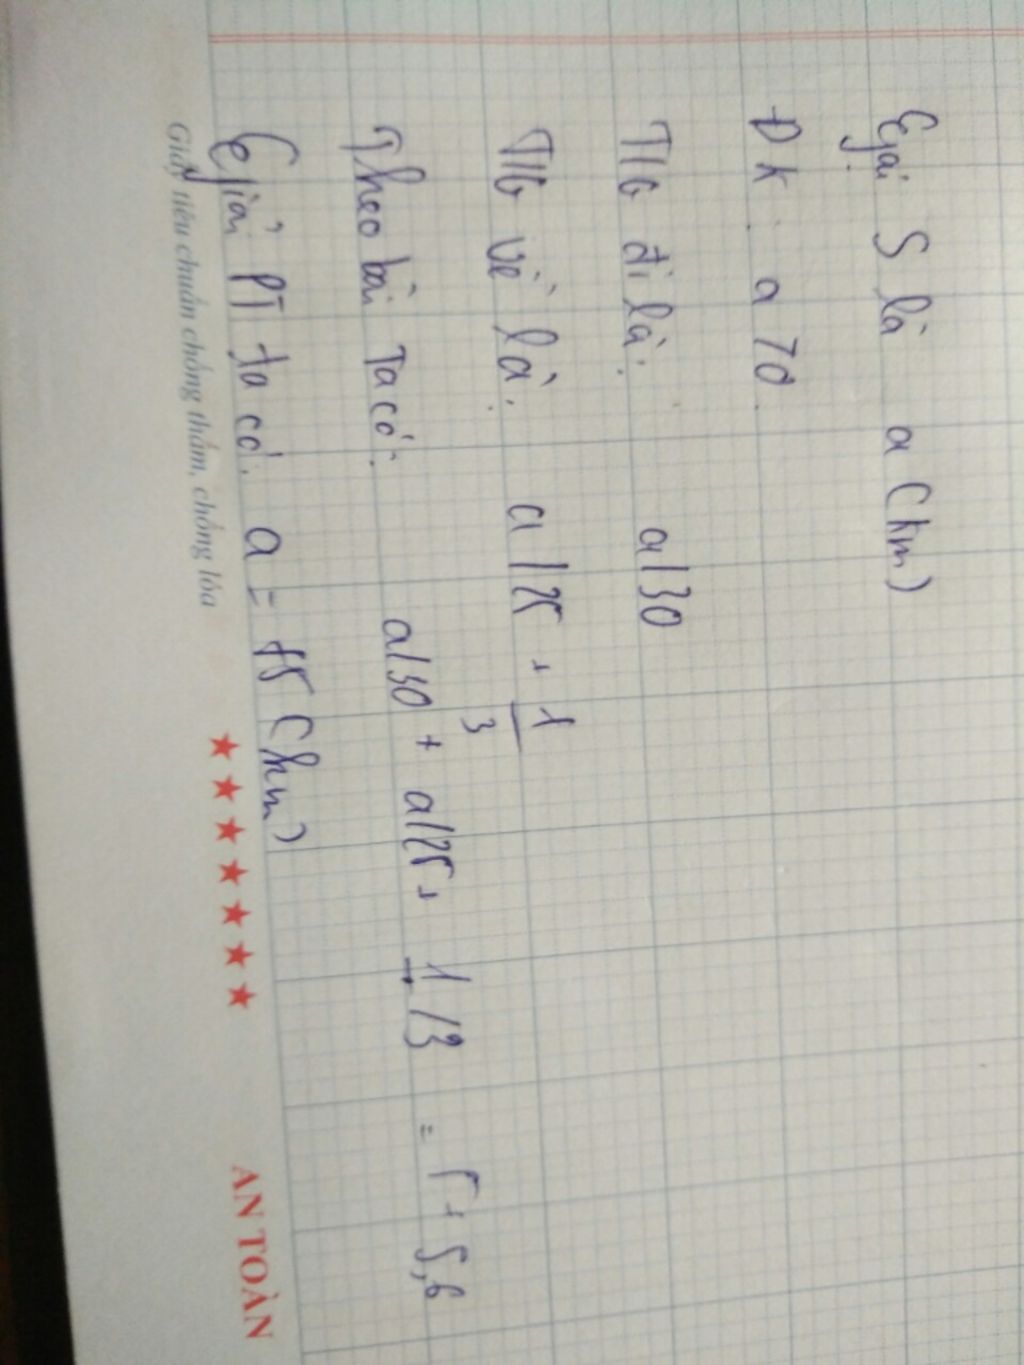 Gọi S là a (km)
ĐK: a > 0.
TG đi là: a/30
TG về là: a/25 + 1/3
Theo bài ta có: a/30 + a/25 + 1/3 = 5,6
Giải PT ta có: a = 75 (km)
Giấy tiêu chuẩn chống thấm, chống lóa
★★★★★★★ AN TOÀN